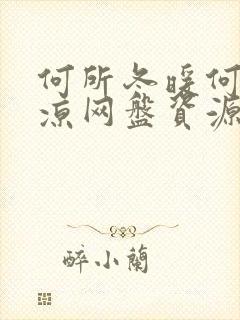 何所冬暖何
凉网盘资源
醉小蘭